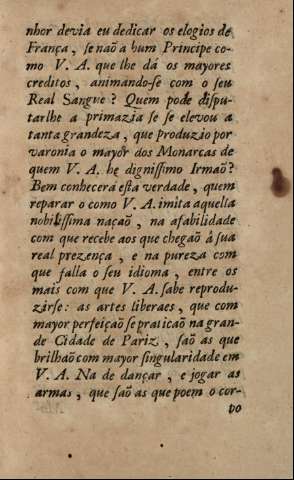 nhor devia eu dedicar os elogios de
França, se naõ a hum Principe co-
mo V. A. que lhe dá os mayores
creditos, animando-se com o seu
Real Sangue? Quem pode dispu-
tarlhe a primazia se se elevou a
tanta grandeza, que produzio por
varonia o mayor dos Monarcas de
quem V. A. he dignissimo Irmaõ?
Bem conhecerá esta verdade, quem
reparar o como V. A. imita aquella
nobilissima naçaõ, na afabilidade
com que recebe aos que chegaõ á sua
real prezença, e na pureza com
que falla o seu idioma, entre os
mais com que V. A. sabe reprodu-
zirse: as artes liberaes, que com
mayor perfeiçaõ se praticaõ na gran-
de Cidade de Pariz, saõ as que
brilhaõ com mayor singularidade em
V. A. Na de dançar, e jogar as
armas, que saõ as que poem o cor-
po